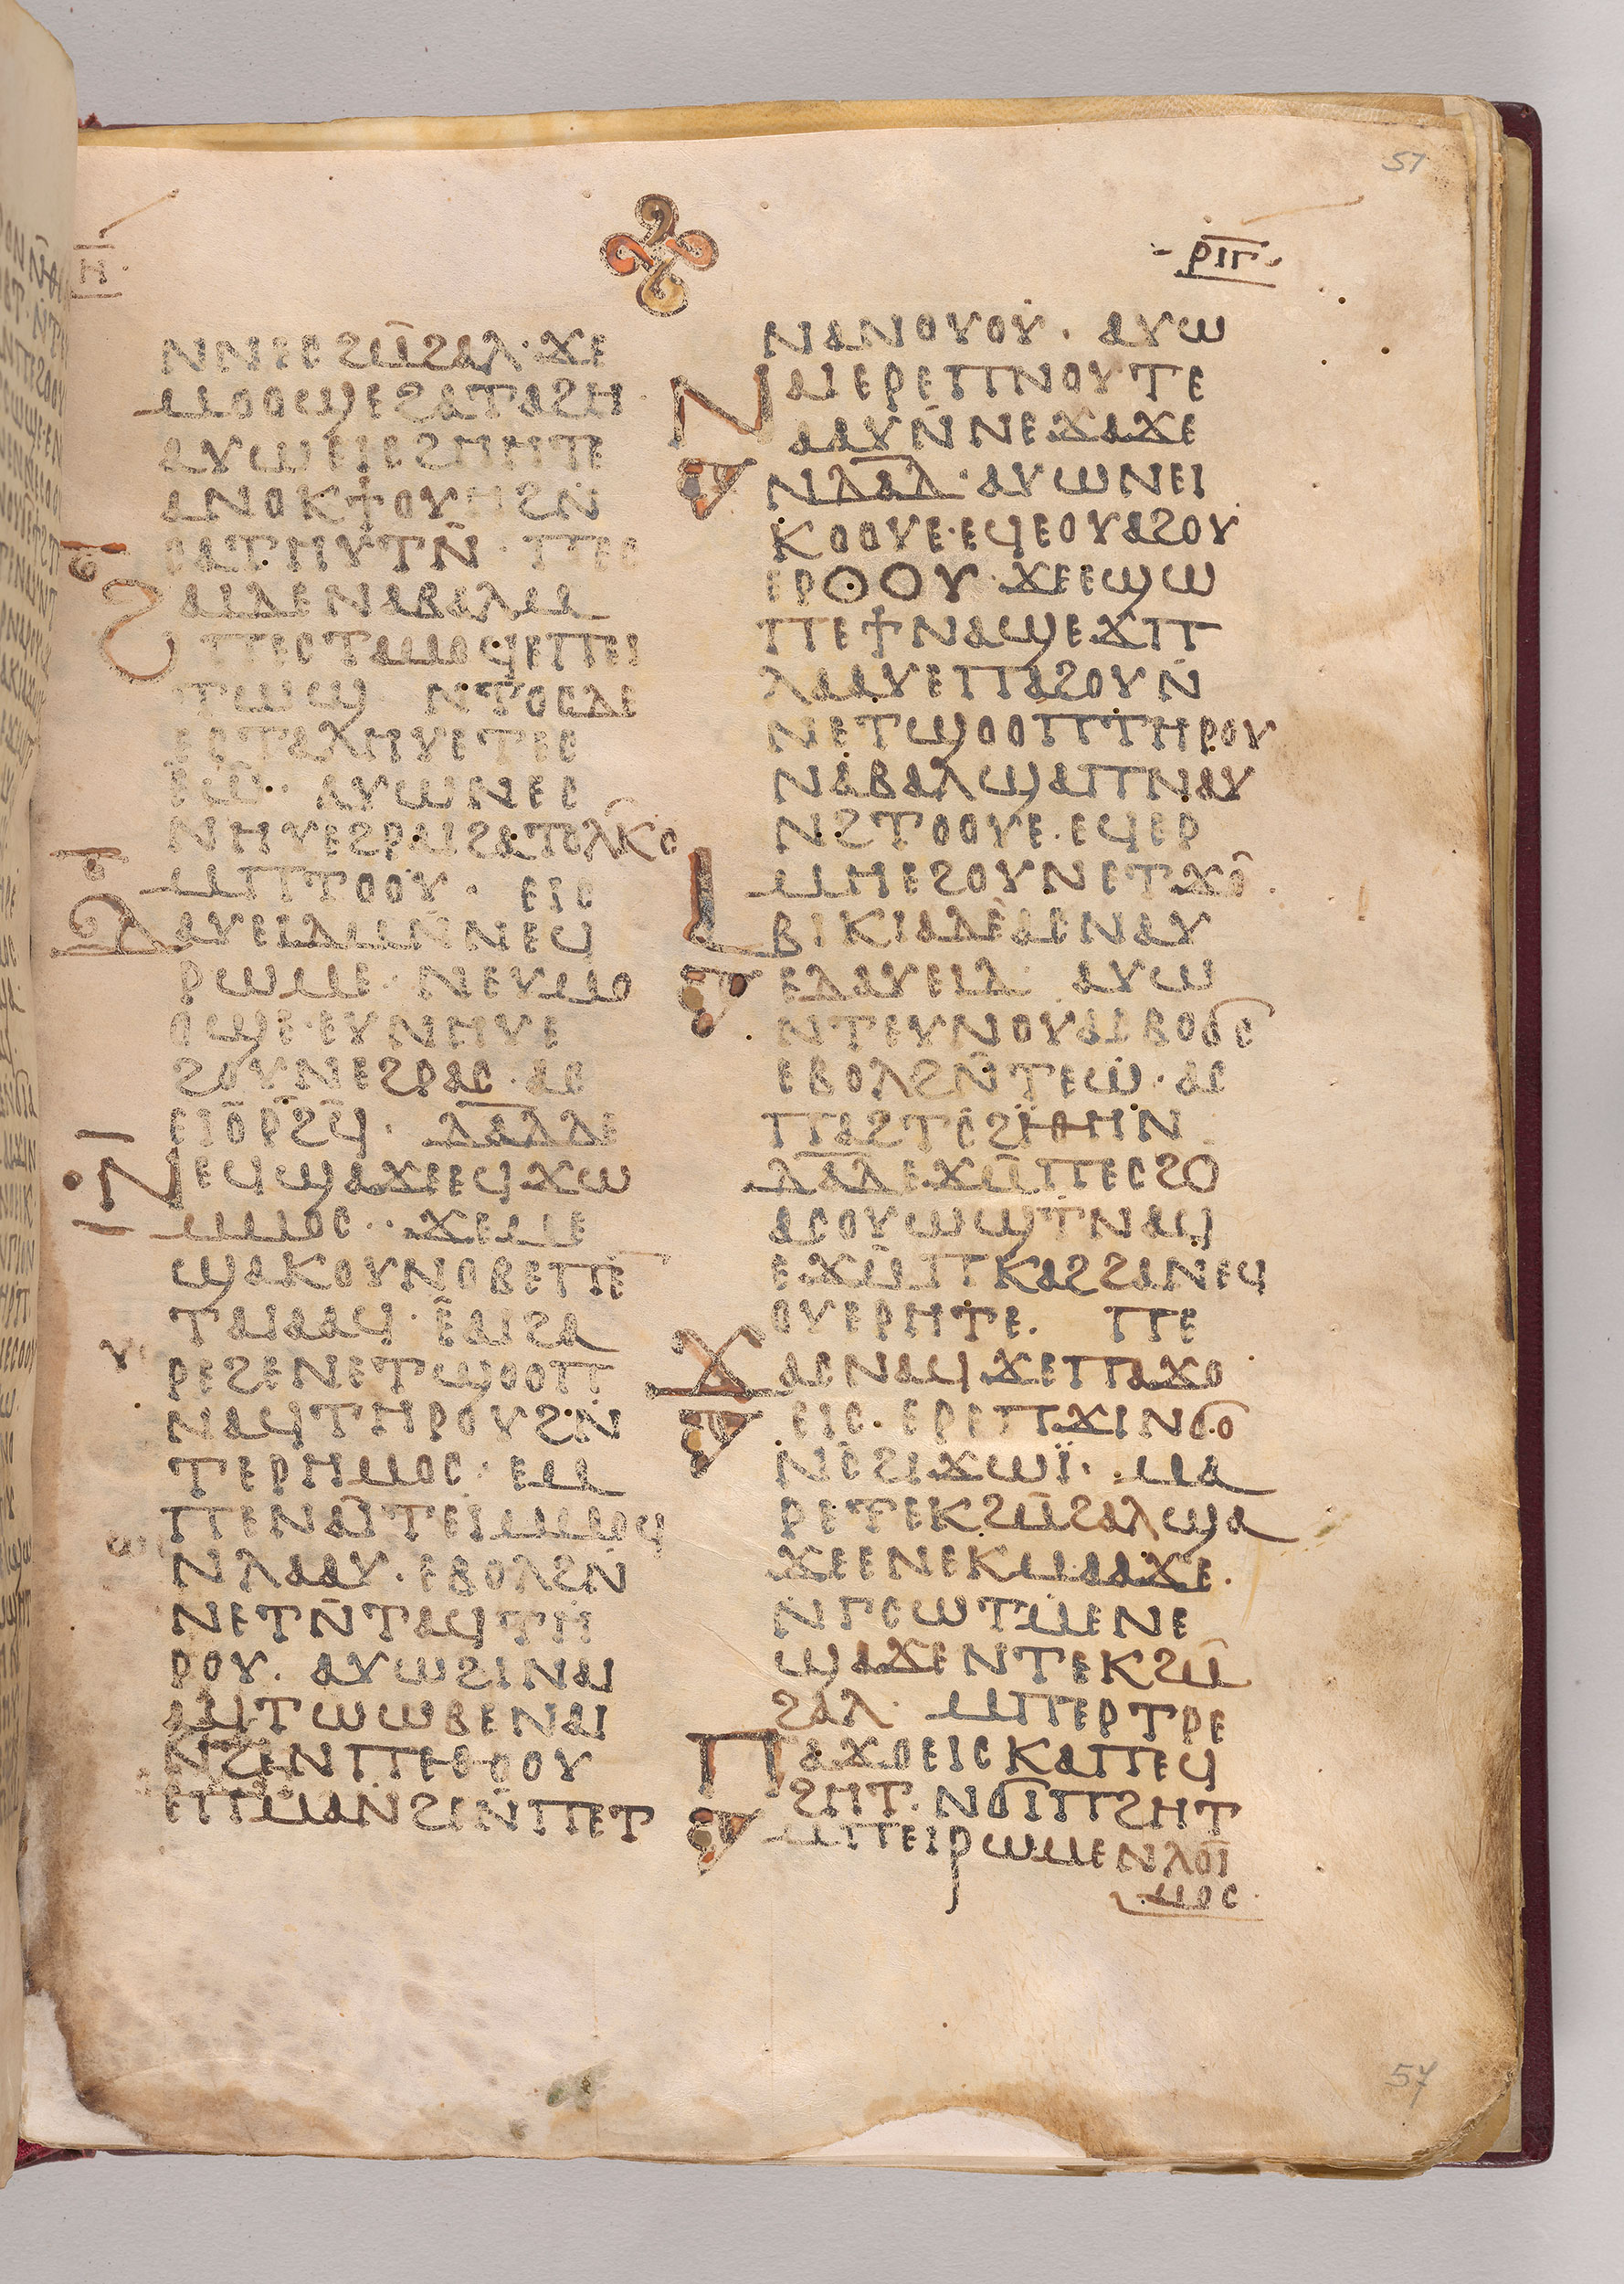 Ⲏ
ⲢⲒⲄ
51
ⲚⲚⲈⲤϨⲘ̄ϨⲀⲖ·ϪⲈ
ⲘⲞⲞϢⲈϨⲀⲦⲀϨⲎ
ⲀⲨⲰⲈⲒⲈϨⲎⲎⲦⲈ
ⲀⲚⲞⲔϮⲞⲨⲎϨⲚ̄
ⲤⲀⲦⲎⲨⲦⲚ̄·ⲠⲈⲤ
ϨⲀⲒⲆⲈⲚⲀⲂⲀⲖⲘ
ⲠⲈⲤⲦⲀⲘⲞϤⲈⲠⲈⲒ
ⲦⲰϢ ⲚⲦⲞⲤⲆⲈ
ⲈⲤⲦⲀⲖⲎⲨⲈⲦⲈⲤ
ⲈⲰ̄· ⲀⲨⲰⲚⲈⲤ
ⲚⲎⲨⲈϨⲢⲀⲒϨⲀ
ⲘⲠⲦⲞⲞⲨ· ⲈⲒⲤ
ⲆⲀⲨⲈⲒⲆⲘⲚ̄ⲚⲈϤ
ⲢⲰⲘⲈ· ⲚⲈⲨⲘⲞ
ⲞϢⲈ·ⲈⲨⲚⲎⲨⲈ
ϨⲞⲨⲚⲈϨⲢⲀⲤ·ⲀⲤ
ⲈⲒⲞ̄ⲢϨ̄Ϥ̄· ⲆⲀ̄Ⲇ̄ⲆⲈ
ⲚⲈϤϢⲀϪⲈⲈϤϪⲰ
ⲘⲘⲞⲤ·· ϪⲈⲘⲈ
ϢⲀⲔⲞⲨⲚⲞⲂⲈⲠⲈ
ⲦⲀⲒⲀⲀϤ·ⲈⲀⲒϨⲀ
ⲢⲈϨⲈⲚⲈⲦϢⲞⲞⲠ
ⲚⲀϤⲦⲎⲢⲞⲨϨⲚ̄
ⲦⲈⲢⲎⲘⲞⲤ·ⲈⲘ
ⲠⲈⲚⲀⲒⲦⲈⲒⲘⲘⲞϤ
ⲚⲖⲀⲀⲨ·ⲈⲂⲞⲖϨⲚ̄
ⲚⲈⲦⲚ̄ⲦⲀϤⲦⲎ
ⲢⲞⲨ· ⲀⲨⲰϨⲒⲚⲀⲒ
ⲀϤⲦⲰⲰⲂⲈⲚⲀⲒ
ⲚϨⲈⲚⲠⲈⲐⲞⲞⲨ
ⲈⲠⲘⲀⲚϨⲈⲚ̄ⲠⲈⲦ
ⲚⲀⲚⲞⲨⲞⲨ· ⲀⲨⲰ
ⲚⲀⲒⲈⲢⲈⲠⲚⲞⲨⲦⲈ
ⲀⲀⲨⲚ̄ⲚⲈϪⲀϪⲈ
ⲚⲆⲀ̄Ⲇ̄·ⲀⲨⲰⲚⲈⲒ
ⲔⲞⲞⲨⲈ·ⲈϤⲈⲞⲨⲀϨⲞⲨ
ⲈⲢⲞⲞⲨ·ϪⲈⲈϢⲰ
ⲠⲈϮⲚⲀϢⲈϪⲠ
ⲖⲀⲀⲨⲈⲠⲀϨⲞⲨⲚ̄
ⲚⲈⲦϢⲞⲞⲠⲦⲎⲢⲞⲨ
ⲚⲀⲂⲀⲖϢⲀⲠⲚⲀⲨ
ⲚϨⲦⲞⲞⲨⲈ·ⲈϤⲈⲢ
ⲘⲎⲈϨⲞⲨⲚⲈⲦϪⲞ̄·
ⲀⲂⲒⲔⲒⲀⲆⲈⲀⲤⲚⲀⲨ
ⲈⲆⲀⲨⲈⲒⲆ· ⲀⲨⲰ
ⲚⲦⲈⲨⲚⲞⲨⲀⲤⲂⲞϬⲤ
ⲈⲂⲞⲖϨⲚ̄ⲦⲈⲰ·ⲀⲤ
ⲠⲀϨⲦⲤϨⲒⲐⲎⲚ
ⲆⲀⲆⲈϪⲘ̄ⲠⲈⲤϨⲞ
ⲀⲤⲞⲨⲰϢⲦⲚⲀϤ
ⲈϪⲘ̄ⲠⲔⲀϨϨⲀⲚⲈϤ
ⲞⲨⲈⲢⲎⲦⲈ· ⲠⲈ
ϪⲀⲤⲚⲀϤ·ϪⲈⲠⲀϪⲞ
ⲈⲒⲤ·ⲈⲢⲈⲠϪⲒⲚϬⲞ
ⲚⲤϨⲒϪⲰⲒ̈·ⲘⲀ
ⲢⲈⲦⲈⲔϨⲘ̄ϨⲀⲖϢⲀ
ϪⲈⲈⲚⲈⲔⲘⲀⲀϪⲈ·
ⲚⲄⲤⲰⲦⲘⲈⲚⲈ
ϢⲀϪⲈⲚⲦⲈⲔϨⲘ̄
ϨⲀⲖ· ⲘⲠⲈⲢⲦⲢⲈ
ⲠⲀϪⲞⲈⲒⲤⲔⲀⲠⲈϤ
ϨⲎⲦ·ⲚϬⲒⲠϨⲎⲦ
ⲘⲠⲈⲒⲢⲰⲘⲈⲚⲖⲞⲒ
ⲘⲞⲤ·
57